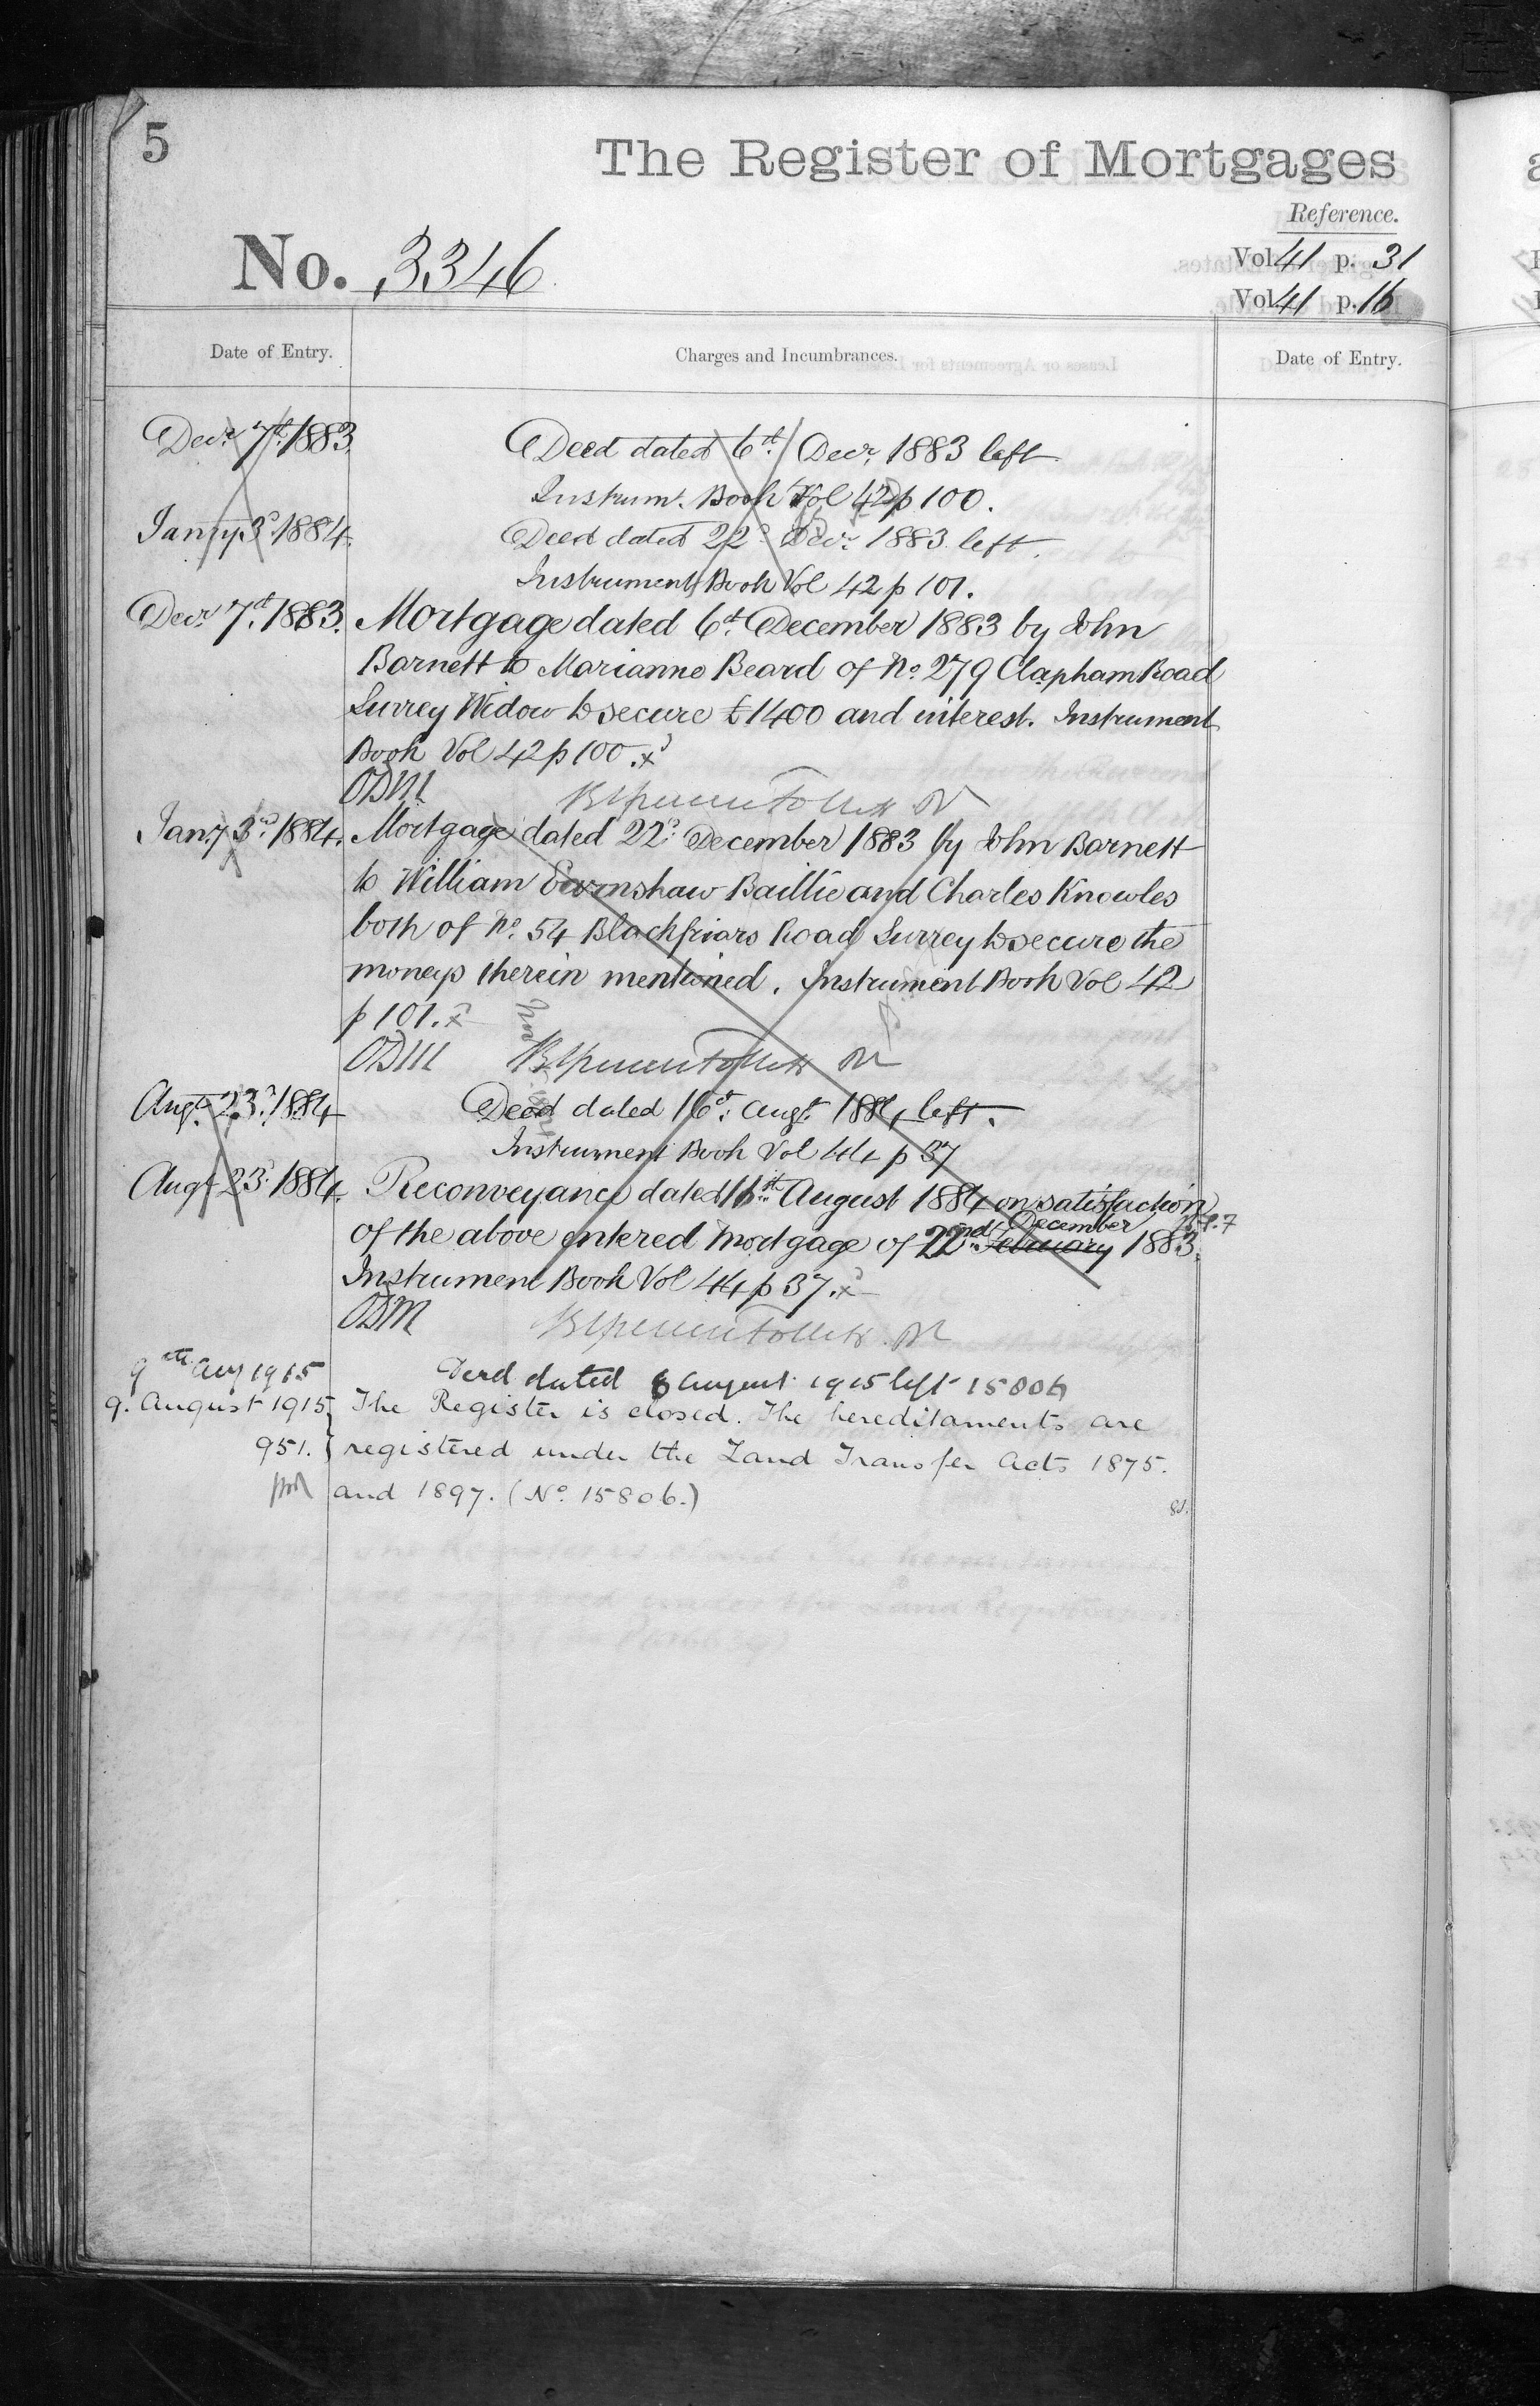 5
The Register of Mortgages
Reference.
No. 3346
Vol. 41 p. 31
Vol. 41 p. 16
Date of Entry.
Charges and Incumbrances.
Date of Entry.
Decr. 7th. 1883
Deed dated 6th. Decr. 1883 left
Instrumt. Book Vol 42 p 100.
Jany 3d. 1884.
Deed dated 22d. Decr. 1883 left.
Instrument Book Vol 42 p 101.
Decr. 7th. 1883.
Mortgage dated 6th. December 1883 by John
Barnett to Marianne Beard of No. 279 Clapham Road
Surrey Widow to secure £1400 and interest. Instrument
Book Vol 42 p 100. x
ODM
Jany 3rd. 1884.
Mortgage dated 22d. December 1883 by John Barnett
to William Earnshaw Baillie and Charles Knowles
both of No. 54 Blackfriars Road Surrey to secure the
moneys therein mentioned. Instrument Book Vol 42
p 101. x
ODM
Augt. 23d. 1884
Deed dated 16th. Augt. 1884 left.
Instrument Book Vol 44 p 37
Augt 23d. 1884.
Reconveyance dated 16th August 1884 on satisfaction
of the above entered Mortgage of 22nd February December 1883.
Instrument Book Vol 44 p 37. x
ODM
9th Aug 1915
Deed dated 6 August 1915 left 15806
9. August 1915.
The Register is closed. The hereditaments are
951.
registered under the Land Transfer Acts 1875.
and 1897. (No. 15806.)